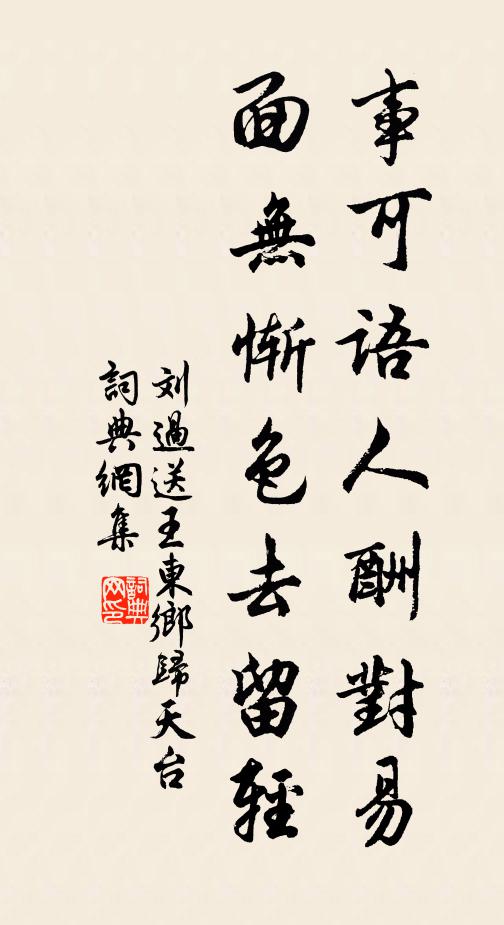 事可語人酬對易
面無慚色去留輕
刘過送王東鄉歸天台
詞典網集
詞典网印